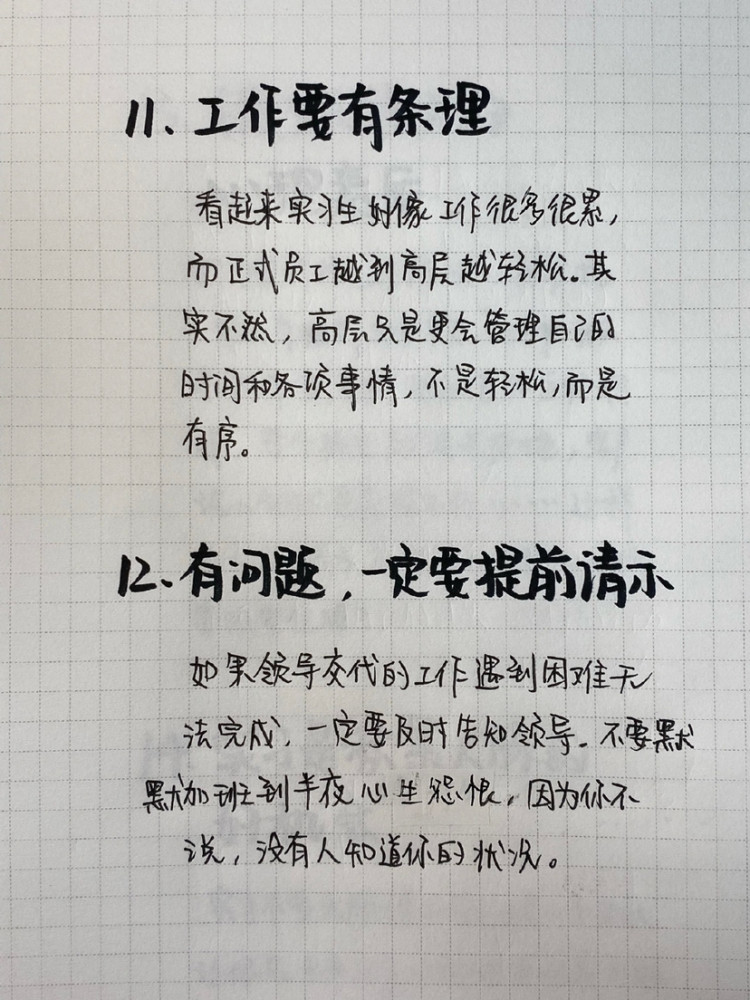 11、工作要有条理
看起来实习生好像工作很多很累，
而正式员工越到高层越轻松。其
实不然，高层只是更会管理自己的
时间和各项事情，不是轻松，而是
有序。
12、有问题，一定要提前请示
如果领导交代的工作遇到困难无
法完成，一定要及时告知领导。不要默
默加班到半夜心生怨恨，因为你不
说，没有人知道你的状况。